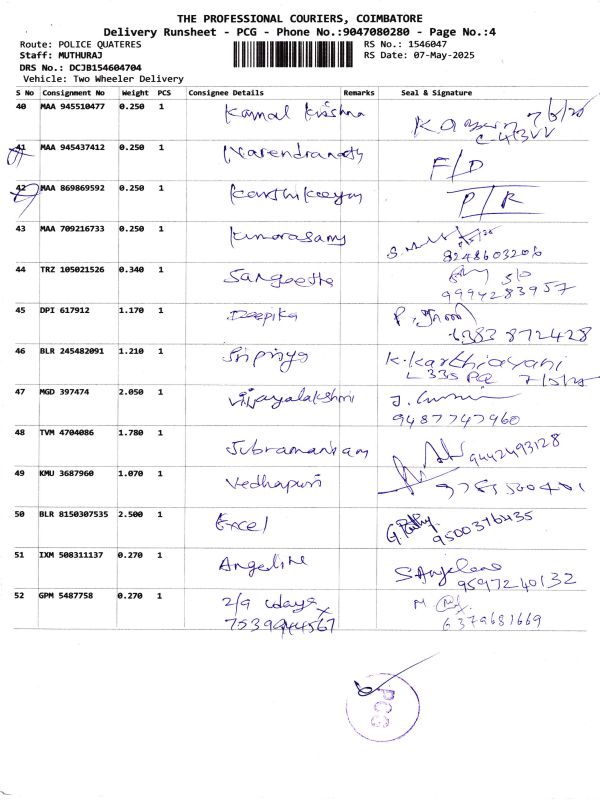 THE PROFESSIONAL COURIERS, COIMBATORE
Delivery Runsheet - PCG - Phone No.:9047080280 - Page No.:4
Route: POLICE QUATERES RS No.: 1546047
Staff: MUTHURAJ RS Date: 07-May-2025
DRS No.: DCJB154604704
Vehicle: Two Wheeler Delivery
S No Consignment No Weight PCS Consignee Details Remarks Seal & Signature
40 MAA 945510477 0.250 1 Kamal Krishna 7/5/25
41 MAA 945437412 0.250 1 Narendranath F/D
42 MAA 869869592 0.250 1 Karthikeyan P/R
43 MAA 709216733 0.250 1 Kumarasamy
8248603206
44 TRZ 105021526 0.340 1 Sangeetha S/O
9994283957
45 DPI 617912 1.170 1 Deepika
6383 872428
46 BLR 245482091 1.210 1 Sripriya K.Karthiayani
L 335 7/5/25
47 MGD 397474 2.050 1 Vijayalakshmi
9487747960
48 TVM 4704086 1.780 1 Subramaniam 9442493128
49 KMU 3687960 1.070 1 Vedhapuri
50 BLR 8150307535 2.500 1 Excel 9500376435
51 IXM 508311137 0.270 1 Angeline
9597240132
52 GPM 5487758 0.270 1 2/9 M
6379681669
PCG